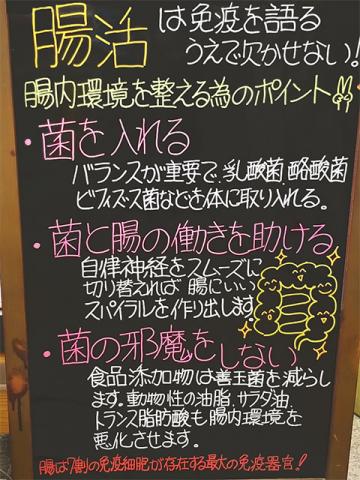 腸活は免疫を語る
うえで欠かせない!
腸内環境を整える為のポイント!!
・菌を入れる
バランスが重要で、乳酸菌、酪酸菌
ビフィズス菌などを体に取り入れる。
・菌と腸の働きを助ける
自律神経をスムーズに
切り替えれば腸にいい
スパイラルを作り出します。
・菌の邪魔をしない
食品添加物は善玉菌を減らし
ます。動物性の油脂、サラダ油、
トランス脂肪酸も腸内環境を
悪化させます。
腸は7割の免疫細胞が存在する最大の免疫器官!